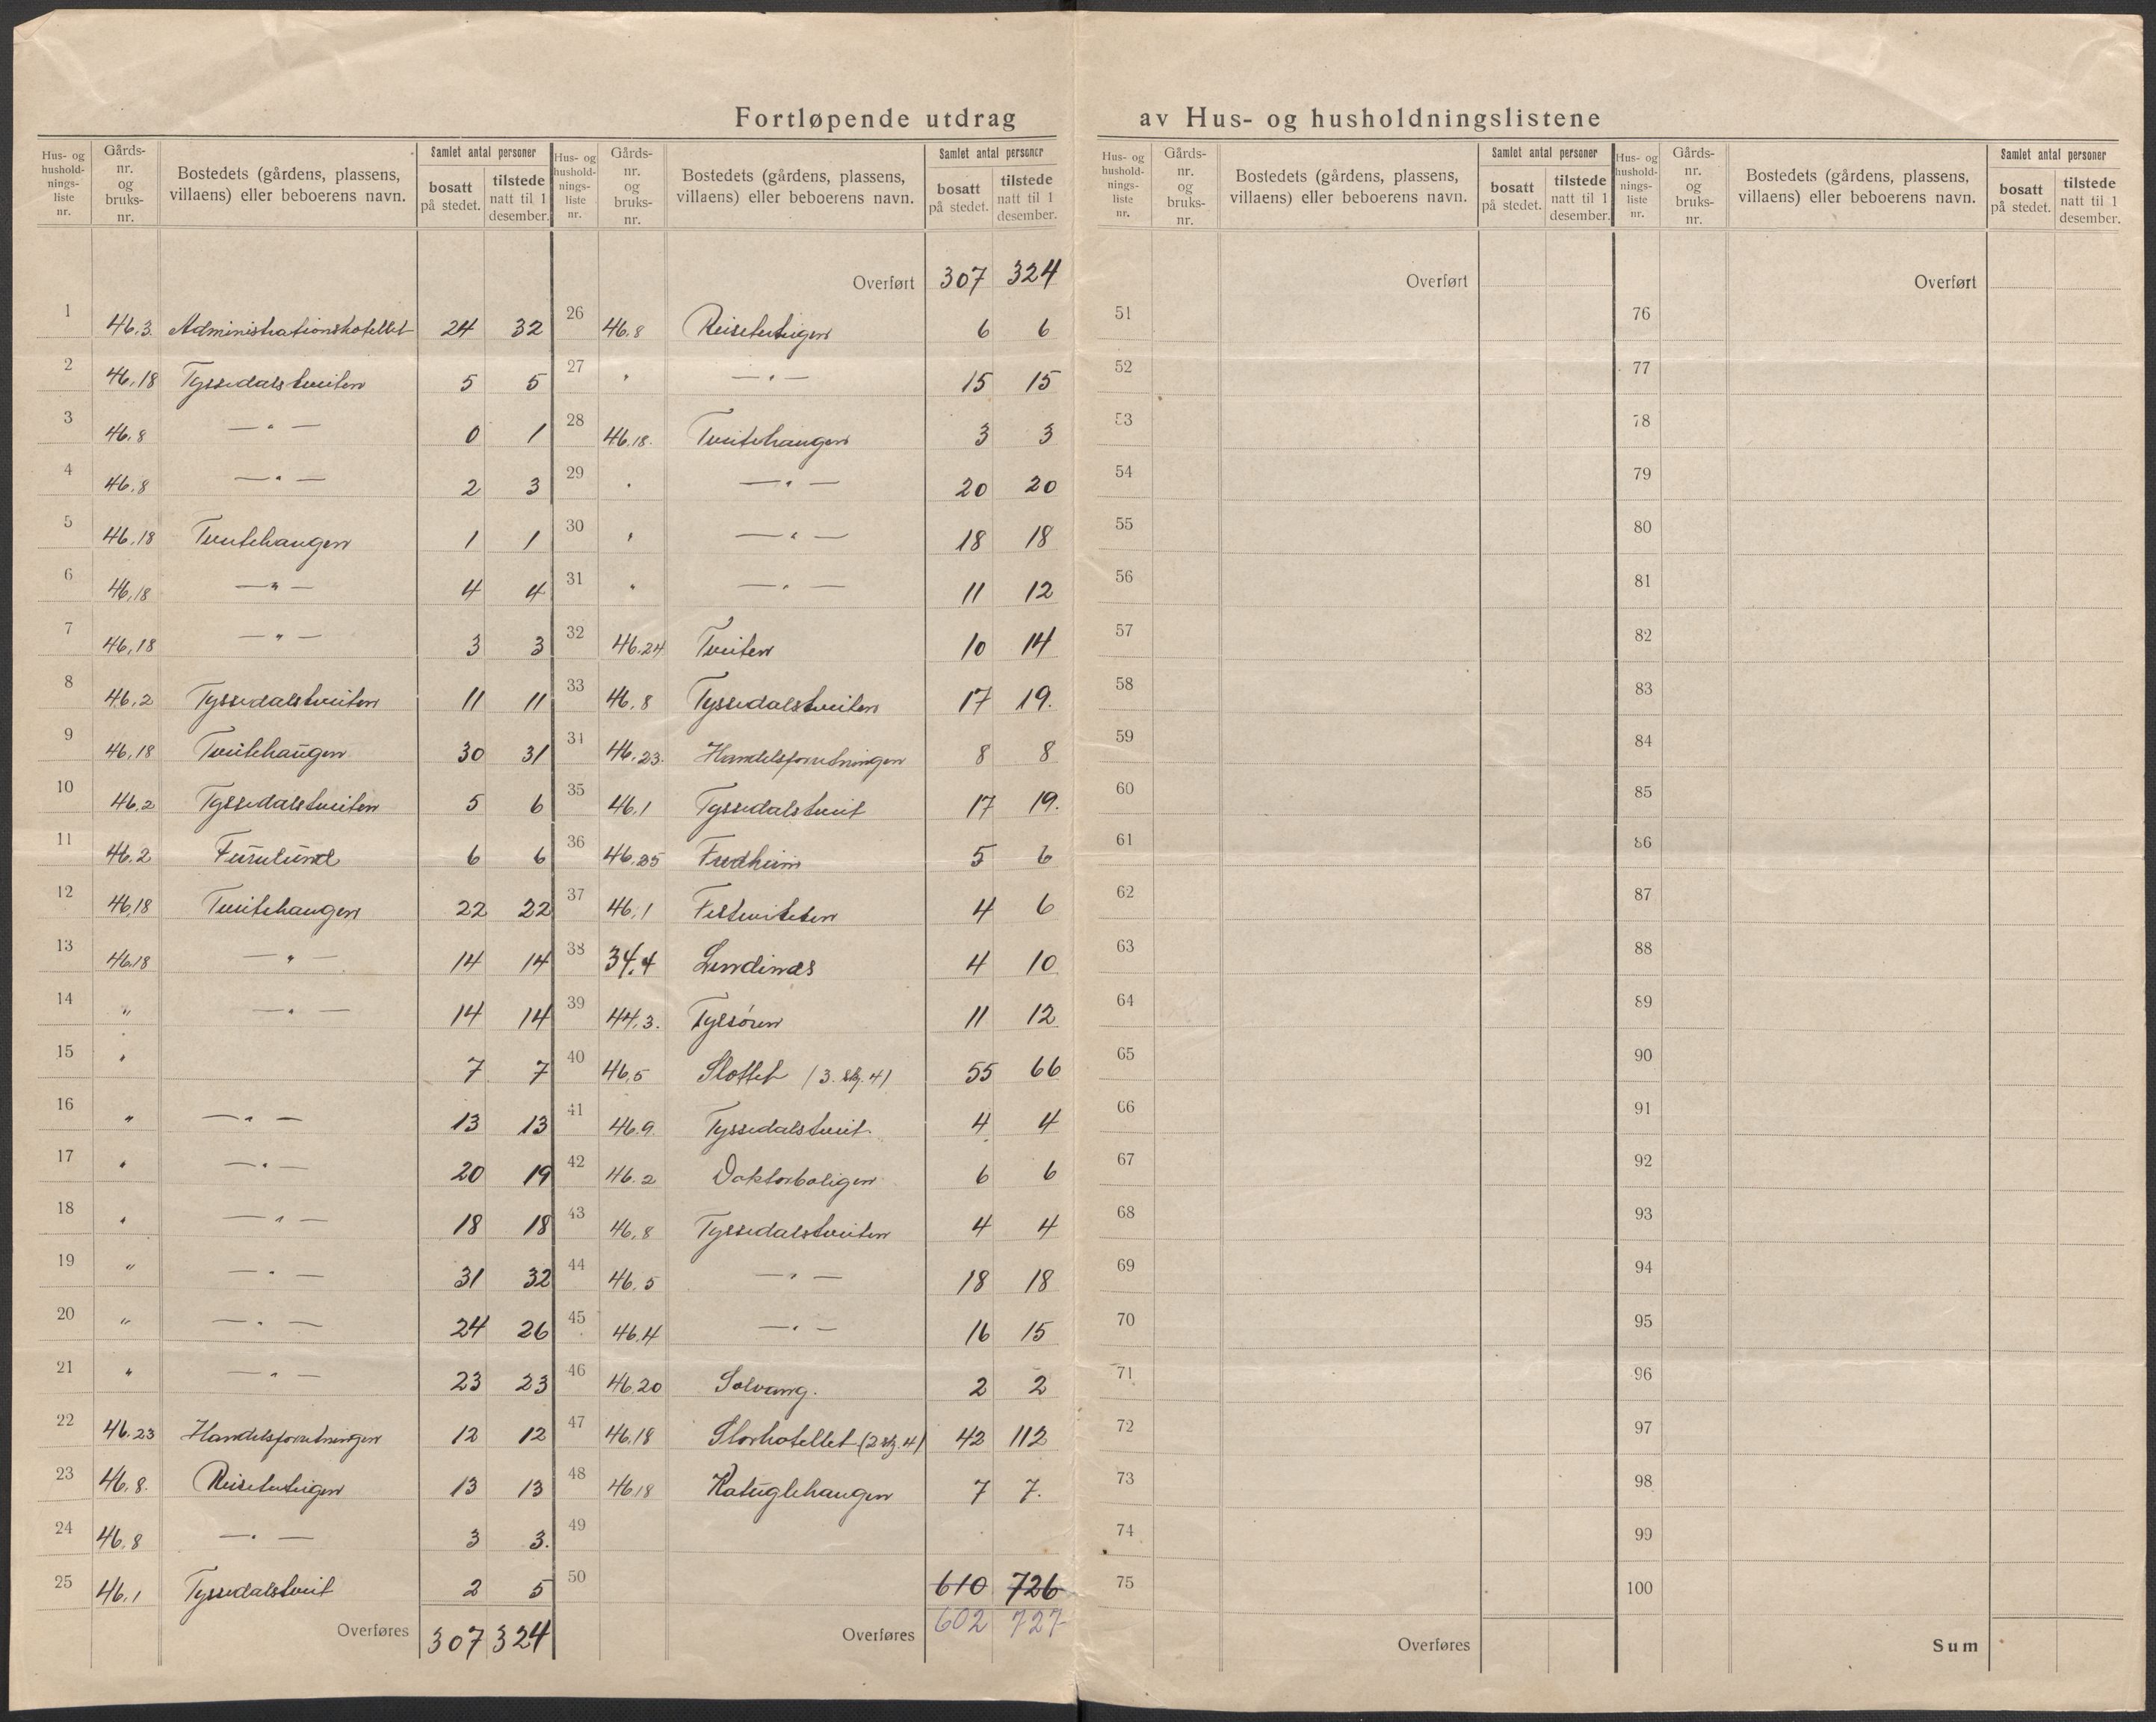 Fortløpende utdrag av Hus- og husholdningslistene
Hus- og hushold-nings-liste nr. | Gårds-nr. og bruks-nr. | Bostedets (gårdens, plassens, villaens) eller beboerens navn. | Samlet antal personer | bosatt på stedet. | tilstede natt til 1 desember.
1 46.3. Administrationshotellet 24 32
2 46.18 Tyssedalstveiten 5 5
3 46.8 —„— 0 1
4 46.8 —„— 2 3
5 46.18 Tveitehaugen 1 1
6 46.18 —„— 4 4
7 46.18 —„— 3 3
8 46.2 Tyssedalstveiten 11 11
9 46.18 Tveitehaugen 30 31
10 46.2 Tyssedalstveiten 5 6
11 46.2 Furulund 6 6
12 46.18 Tveitehaugen 22 22
13 46.18 —„— 14 14
14 „ —„— 14 14
15 „ 7 7
16 „ —„— 13 13
17 „ —„— 20 19
18 „ —„— 18 18
19 „ —„— 31 32
20 „ —„— 24 26
21 „ —„— 23 23
22 46.23 Handelsforretningen 12 12
23 46.8. 13 13
24 46.8 —„— 3 3.
25 46.1 Tyssedalstveit 2 5
Overføres 307 324
Hus- og hushold-nings-liste nr. | Gårds-nr. og bruks-nr. | Bostedets (gårdens, plassens, villaens) eller beboerens navn. | Samlet antal personer | bosatt på stedet. | tilstede natt til 1 desember.
Overført 307 324
26 46.8 6 6
27 „ —„— 15 15
28 46.18. Tveitehaugen 3 3
29 „ —„— 20 20
30 „ —„— 18 18
31 „ —„— 11 12
32 46.24 Tveiten 10 14
33 46.8 Tyssedalstveiten 17 19.
34 46.23. Handelsforretningen 8 8
35 46.1 Tyssedalstveit 17 19.
36 46.25 Fredheim 5 6
37 46.1 Festiviteten 4 6
38 34.4 Lindenæs 4 10
39 44.3. Tyssøren 11 12
40 46.5 Slottet (3. etg. 4) 55 66
41 46.9. Tyssedalstveit 4 4
42 46.2 Doktorboligen 6 6
43 46.8 Tyssedalstveiten 4 4
44 46.5 —„— 18 18
45 46.4 —„— 16 15
46 46.20 Solvang. 2 2
47 46.18 Storhotellet (2 etg. 4) 42 112
48 46.18 Katuglehaugen 7 7.
49
50 610 726
Overføres 602 727
Hus- og hushold-nings-liste nr. | Gårds-nr. og bruks-nr. | Bostedets (gårdens, plassens, villaens) eller beboerens navn. | Samlet antal personer | bosatt på stedet. | tilstede natt til 1 desember.
Overført
51
52
53
54
55
56
57
58
59
60
61
62
63
64
65
66
67
68
69
70
71
72
73
74
75
Overføres
Hus- og hushold-nings-liste nr. | Gårds-nr. og bruks-nr. | Bostedets (gårdens, plassens, villaens) eller beboerens navn. | Samlet antal personer | bosatt på stedet. | tilstede natt til 1 desember.
Overført
76
77
78
79
80
81
82
83
84
85
86
87
88
89
90
91
92
93
94
95
96
97
98
99
100
Sum